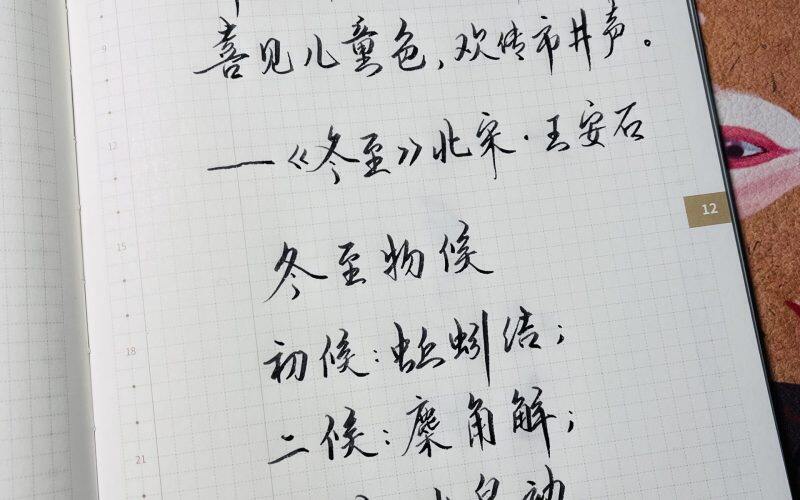 喜见儿童色，欢传市井声。
——《冬至》北宋·王安石
冬至物候
初候：蚯蚓结；
二候：麋角解；
水泉动
9
12
15
18
21
12